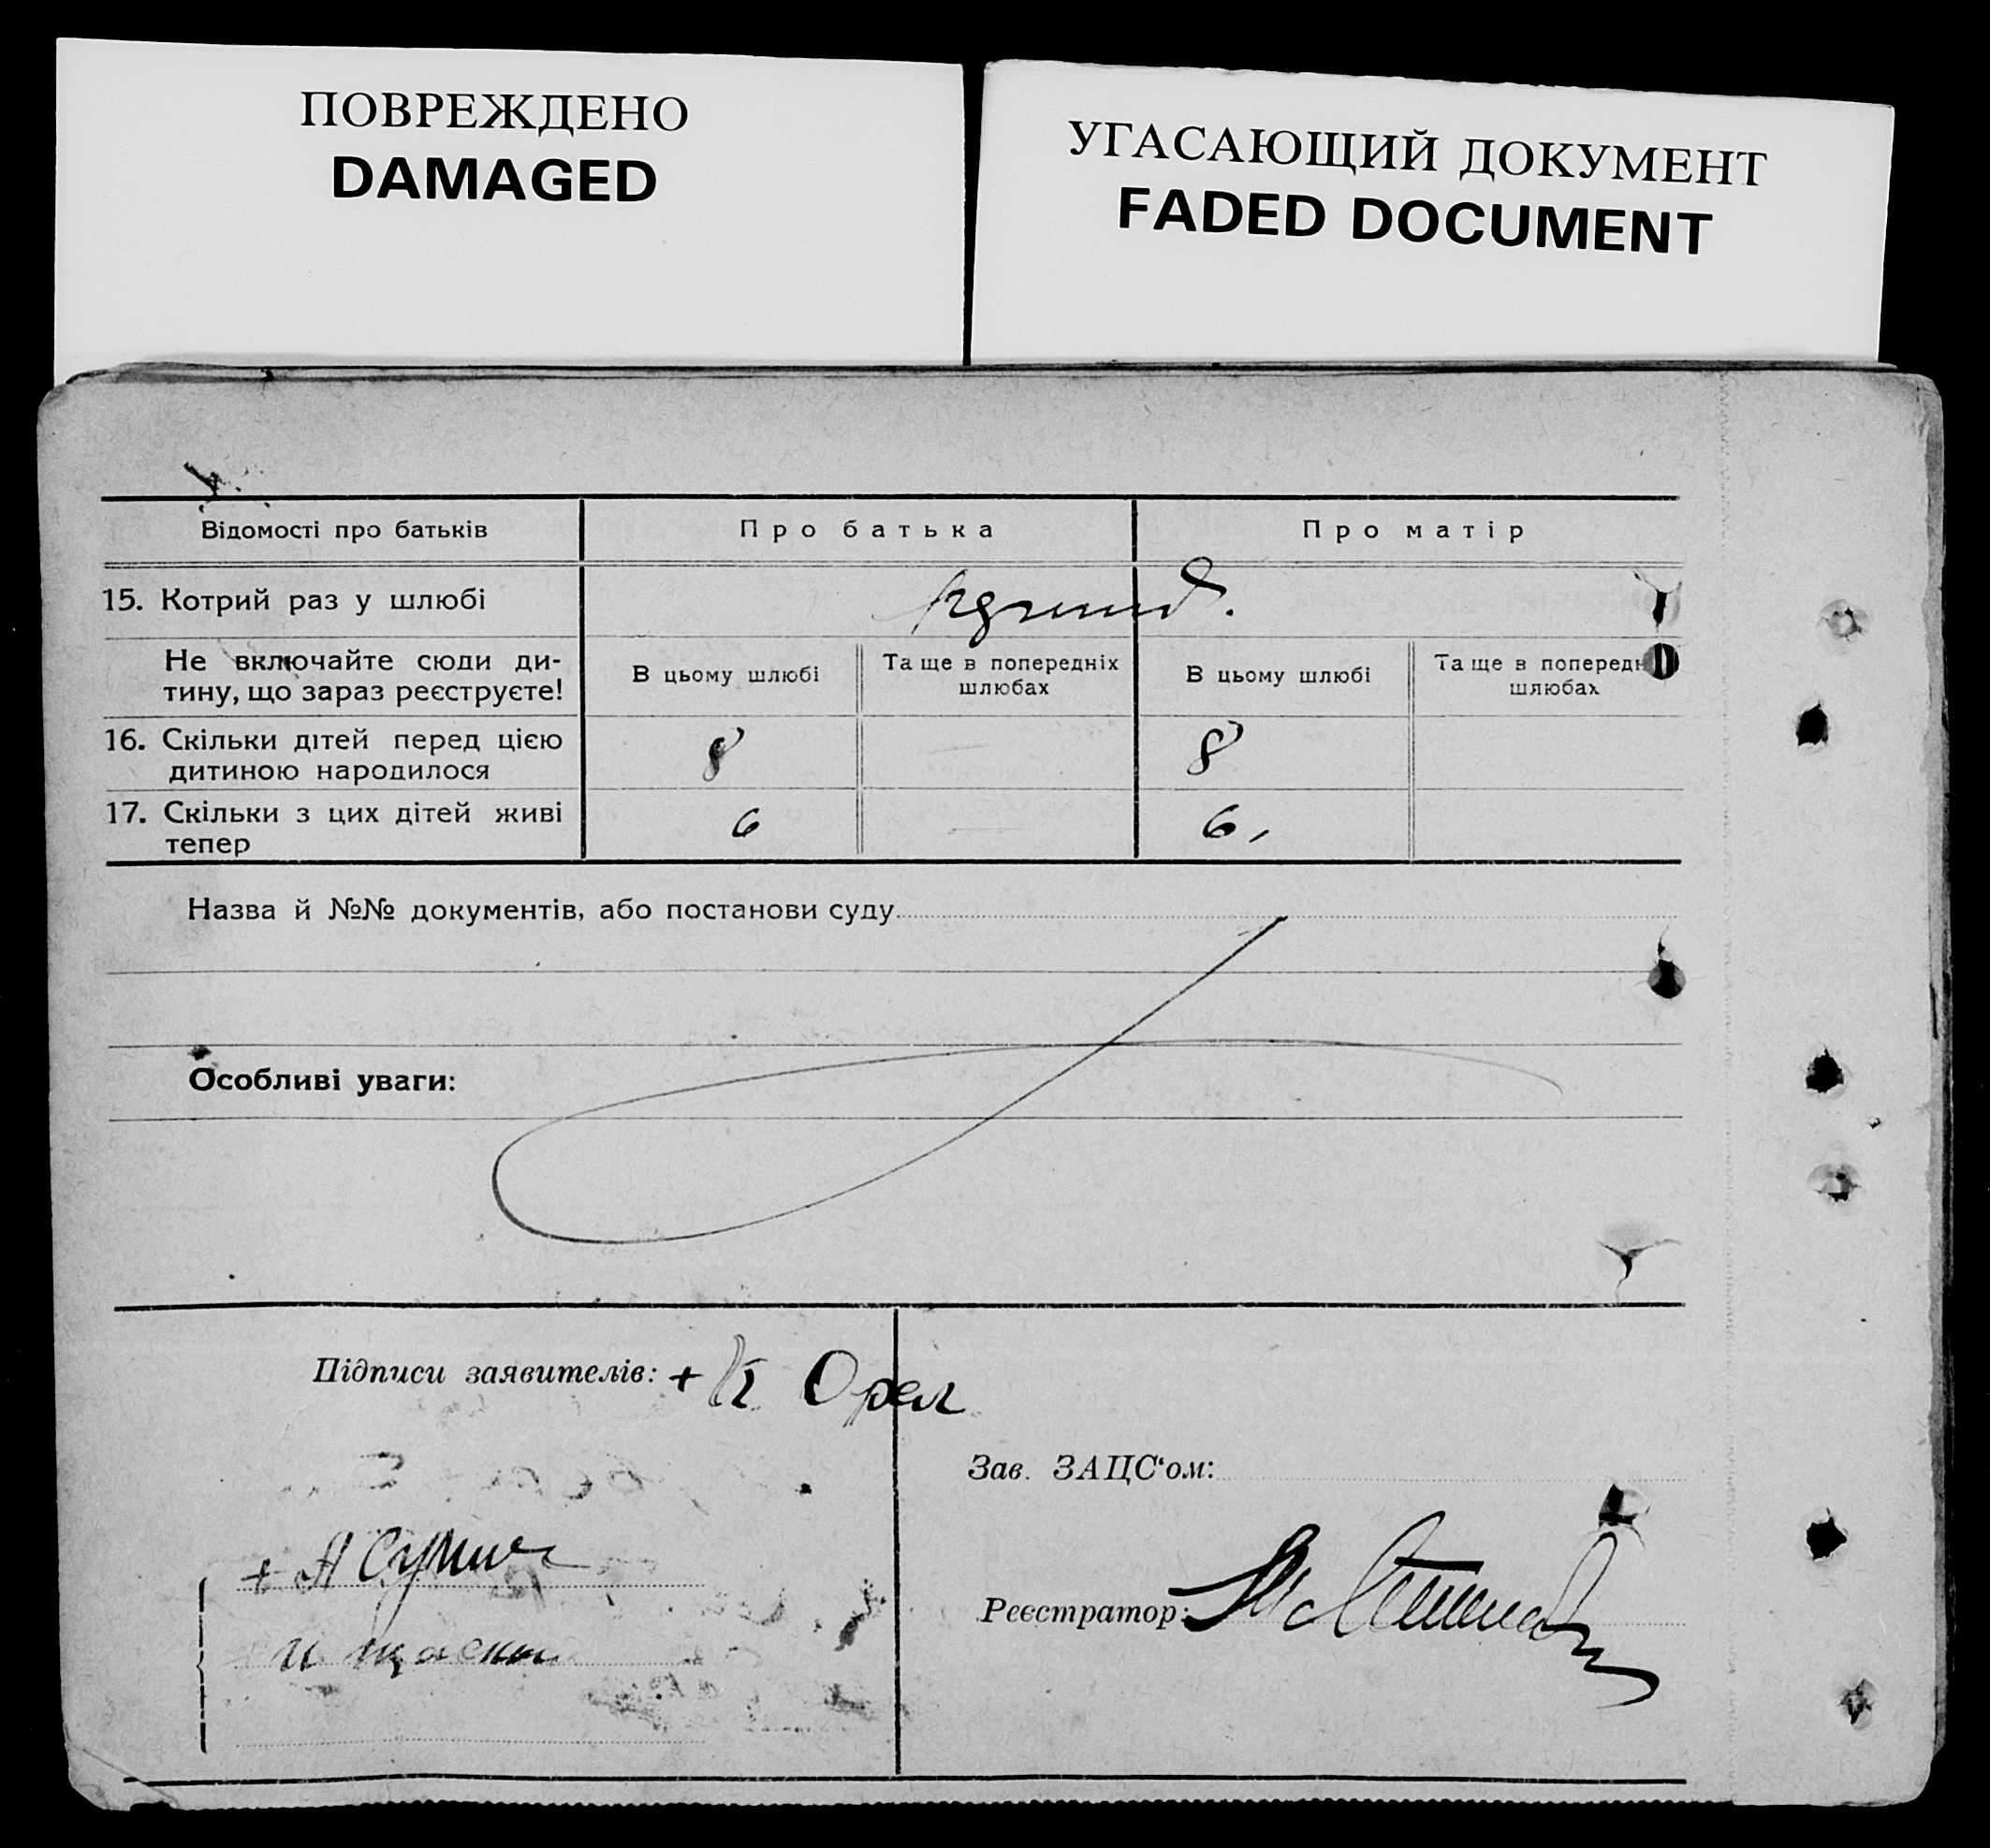 ПОВРЕЖДЕНО
DAMAGED
УГАСАЮЩИЙ ДОКУМЕНТ
FADED DOCUMENT
Відомості про батьків
Про батька
Про матір
15. Котрий раз у шлюбі
Не включайте сюди ди-
тину, що зараз реєструєте!
В цьому шлюбі
Та ще в попередніх
шлюбах
В цьому шлюбі
Та ще в попередн
шлюбах
16. Скільки дітей перед цією
дитиною народилося
8
8
17. Скільки з цих дітей живі
тепер
6
6
Назва й №№ документів, або постанови суду
Особливі уваги:
Підписи заявителів: + К Орел
Зав. ЗАЦС'ом:
+ А
Реєстратор: